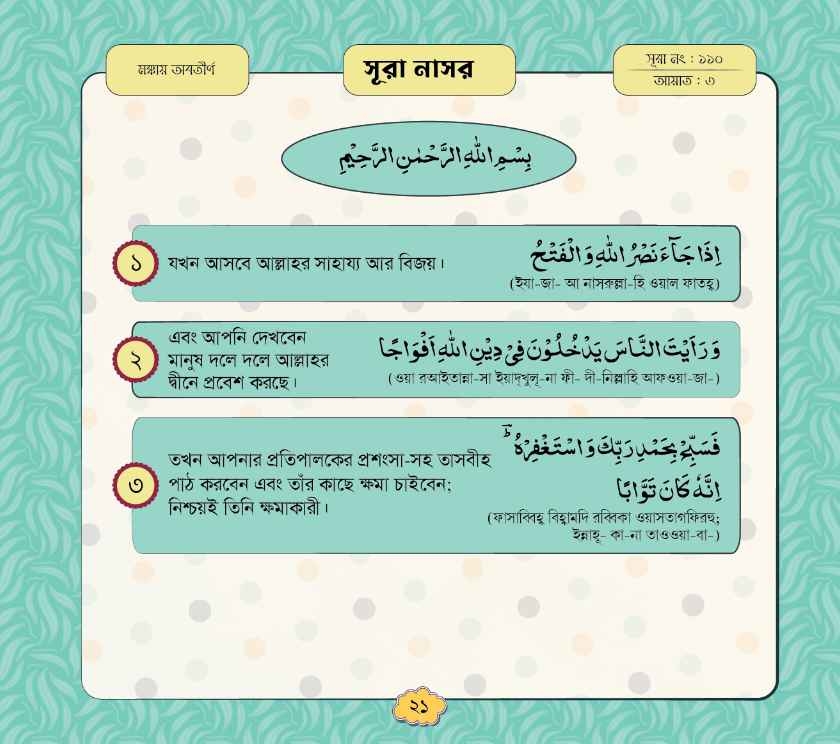 মক্কায় অবতীর্ণ
সূরা নাসর
সূরা নং : ১১০
আয়াত : ৩
بِسْمِ اللهِ الرَّحْمٰنِ الرَّحِيْمِ
১
যখন আসবে আল্লাহর সাহায্য আর বিজয়।
اِذَا جَآءَ نَصْرُ اللهِ وَالْفَتْحُ
(ইযা-জা- আ নাসরুল্লা-হি ওয়াল ফাতহু)
২
এবং আপনি দেখবেন
মানুষ দলে দলে আল্লাহর
দ্বীনে প্রবেশ করছে।
وَرَاَيْتَ النَّاسَ يَدْخُلُوْنَ فِيْ دِيْنِ اللهِ اَفْوَاجًا
(ওয়া রআইতান্না-সা ইয়াদ্‌খুলূ-না ফী- দী-নিল্লাহি আফওয়া-জা-)
৩
তখন আপনার প্রতিপালকের প্রশংসা-সহ তাসবীহ
পাঠ করবেন এবং তাঁর কাছে ক্ষমা চাইবেন;
নিশ্চয়ই তিনি ক্ষমাকারী।
فَسَبِّحْ بِحَمْدِ رَبِّكَ وَاسْتَغْفِرْهُ ؕ
اِنَّهٗ كَانَ تَوَّابًا
(ফাসাব্বিহু বিহামদি রব্বিকা ওয়াসতাগফিরহু;
ইন্নাহূ- কা-না তাওওয়া-বা-)
২১